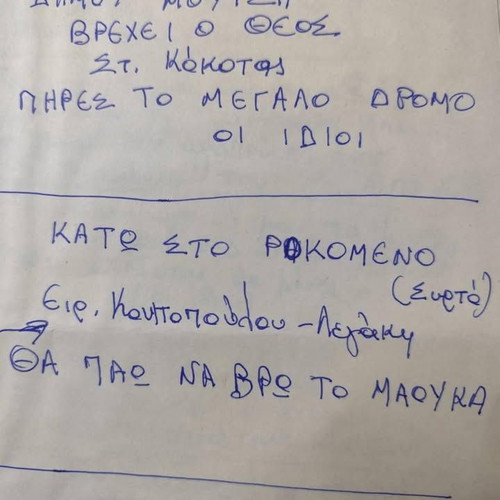 ΒΡΕΧΕΙ Ο ΘΕΟΣ
Στ. Κόκοτας
ΠΗΡΕΣ ΤΟ ΜΕΓΑΛΟ ΔΡΟΜΟ
ΟΙ ΙΔΙΟΙ
ΚΑΤΩ ΣΤΟ ΡΟΚΟΜΕΝΟ
(Συρτό)
Ειρ. Κουτσοπούλου - Λεγάκη
ΘΑ ΠΑΩ ΝΑ ΒΡΩ ΤΟ ΜΑΟΥΚΑ